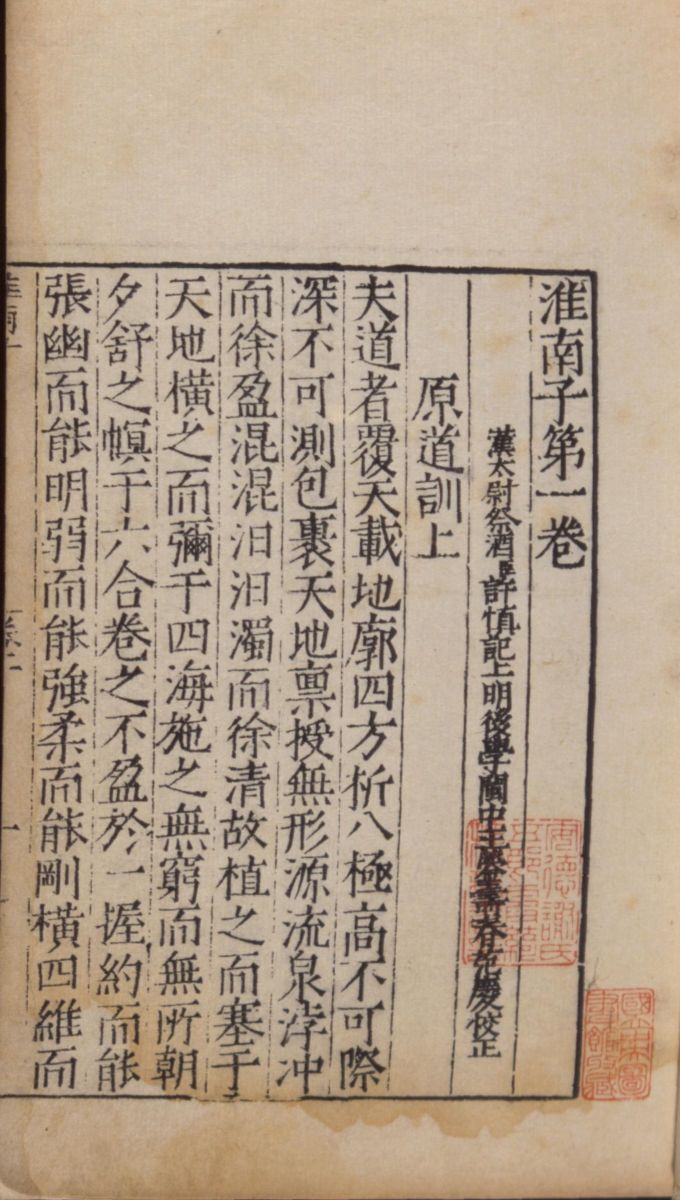 淮南子第一卷
漢太尉祭酒臣許慎記上明後學閩中王鎣壽春范慶校正
原道訓上
夫道者覆天載地廓四方析八極高不可際
深不可測包裹天地稟授無形源流泉浡冲
而徐盈混混汩汩濁而徐清故植之而塞于
天地橫之而彌于四海施之無窮而無所朝
夕舒之幎于六合卷之不盈於一握約而能
張幽而能明弱而能強柔而能剛橫四維而